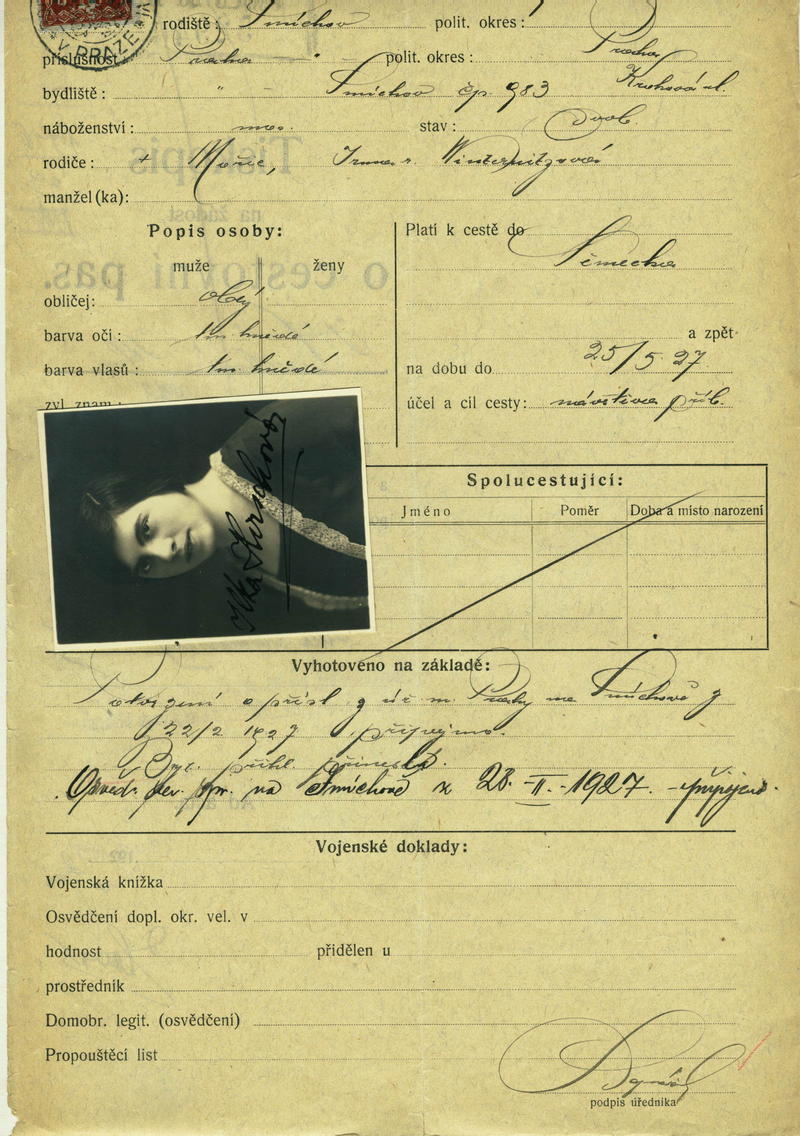 V PRAZE
rodiště: Smíchov polit. okres:
příslušnost: Praha polit. okres: Praha
bydliště: " Smíchov čp. 983
náboženství: stav: svob.
rodiče: + Mořic, Irma r. Winternitzová
manžel(ka):
Popis osoby:
muže ženy
obličej:
barva očí: tm hnědé
barva vlasů: tm. hnědé
zvl. znam.:
Platí k cestě do
Německa
a zpět
na dobu do 25/5 27
účel a cíl cesty: návštěva příb.
Ilka Hirschová
Spolucestující:
Jméno Poměr Doba a místo narození
Vyhotoveno na základě:
Potvrzení o přísl m. Prahy na Smíchově z
22/2 1927 připojeno.
přihl.
Osvědč. na Smíchově z 28.-II.-1927. -připojeno.
Vojenské doklady:
Vojenská knížka
Osvědčení dopl. okr. vel. v
hodnost přidělen u
prostředník
Domobr. legit. (osvědčení)
Propouštěcí list
podpis úředníka